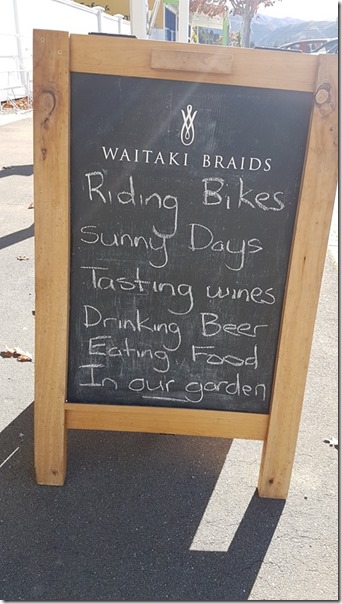 WAITAKI BRAIDS
Riding Bikes
Sunny Days
Tasting wines
Drinking Beer
Eating Food
In our garden